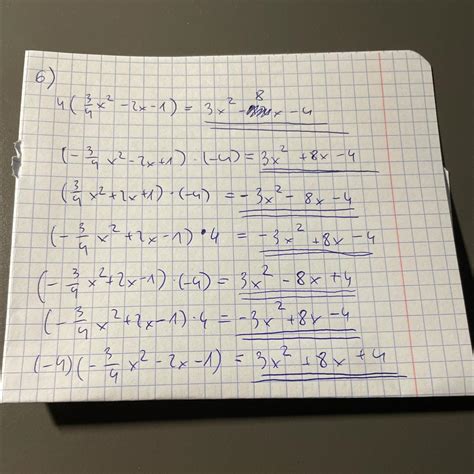 6)
4(3/4x²-2x-1) = 3x²-8x-4
(-3/4x²-2x+1)·(-4) = 3x²+8x-4
(3/4x²+2x+1)·(-4) = -3x²-8x-4
(-3/4x²+2x-1)·4 = -3x²+8x-4
(-3/4x²+2x-1)·(-4) = 3x²-8x+4
(-3/4x²+2x-1)·4 = -3x²+8x-4
(-4)(-3/4x²-2x-1) = 3x²+8x+4